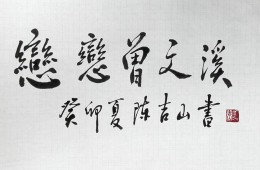 戀戀曾文溪
癸卯夏陈吉山書